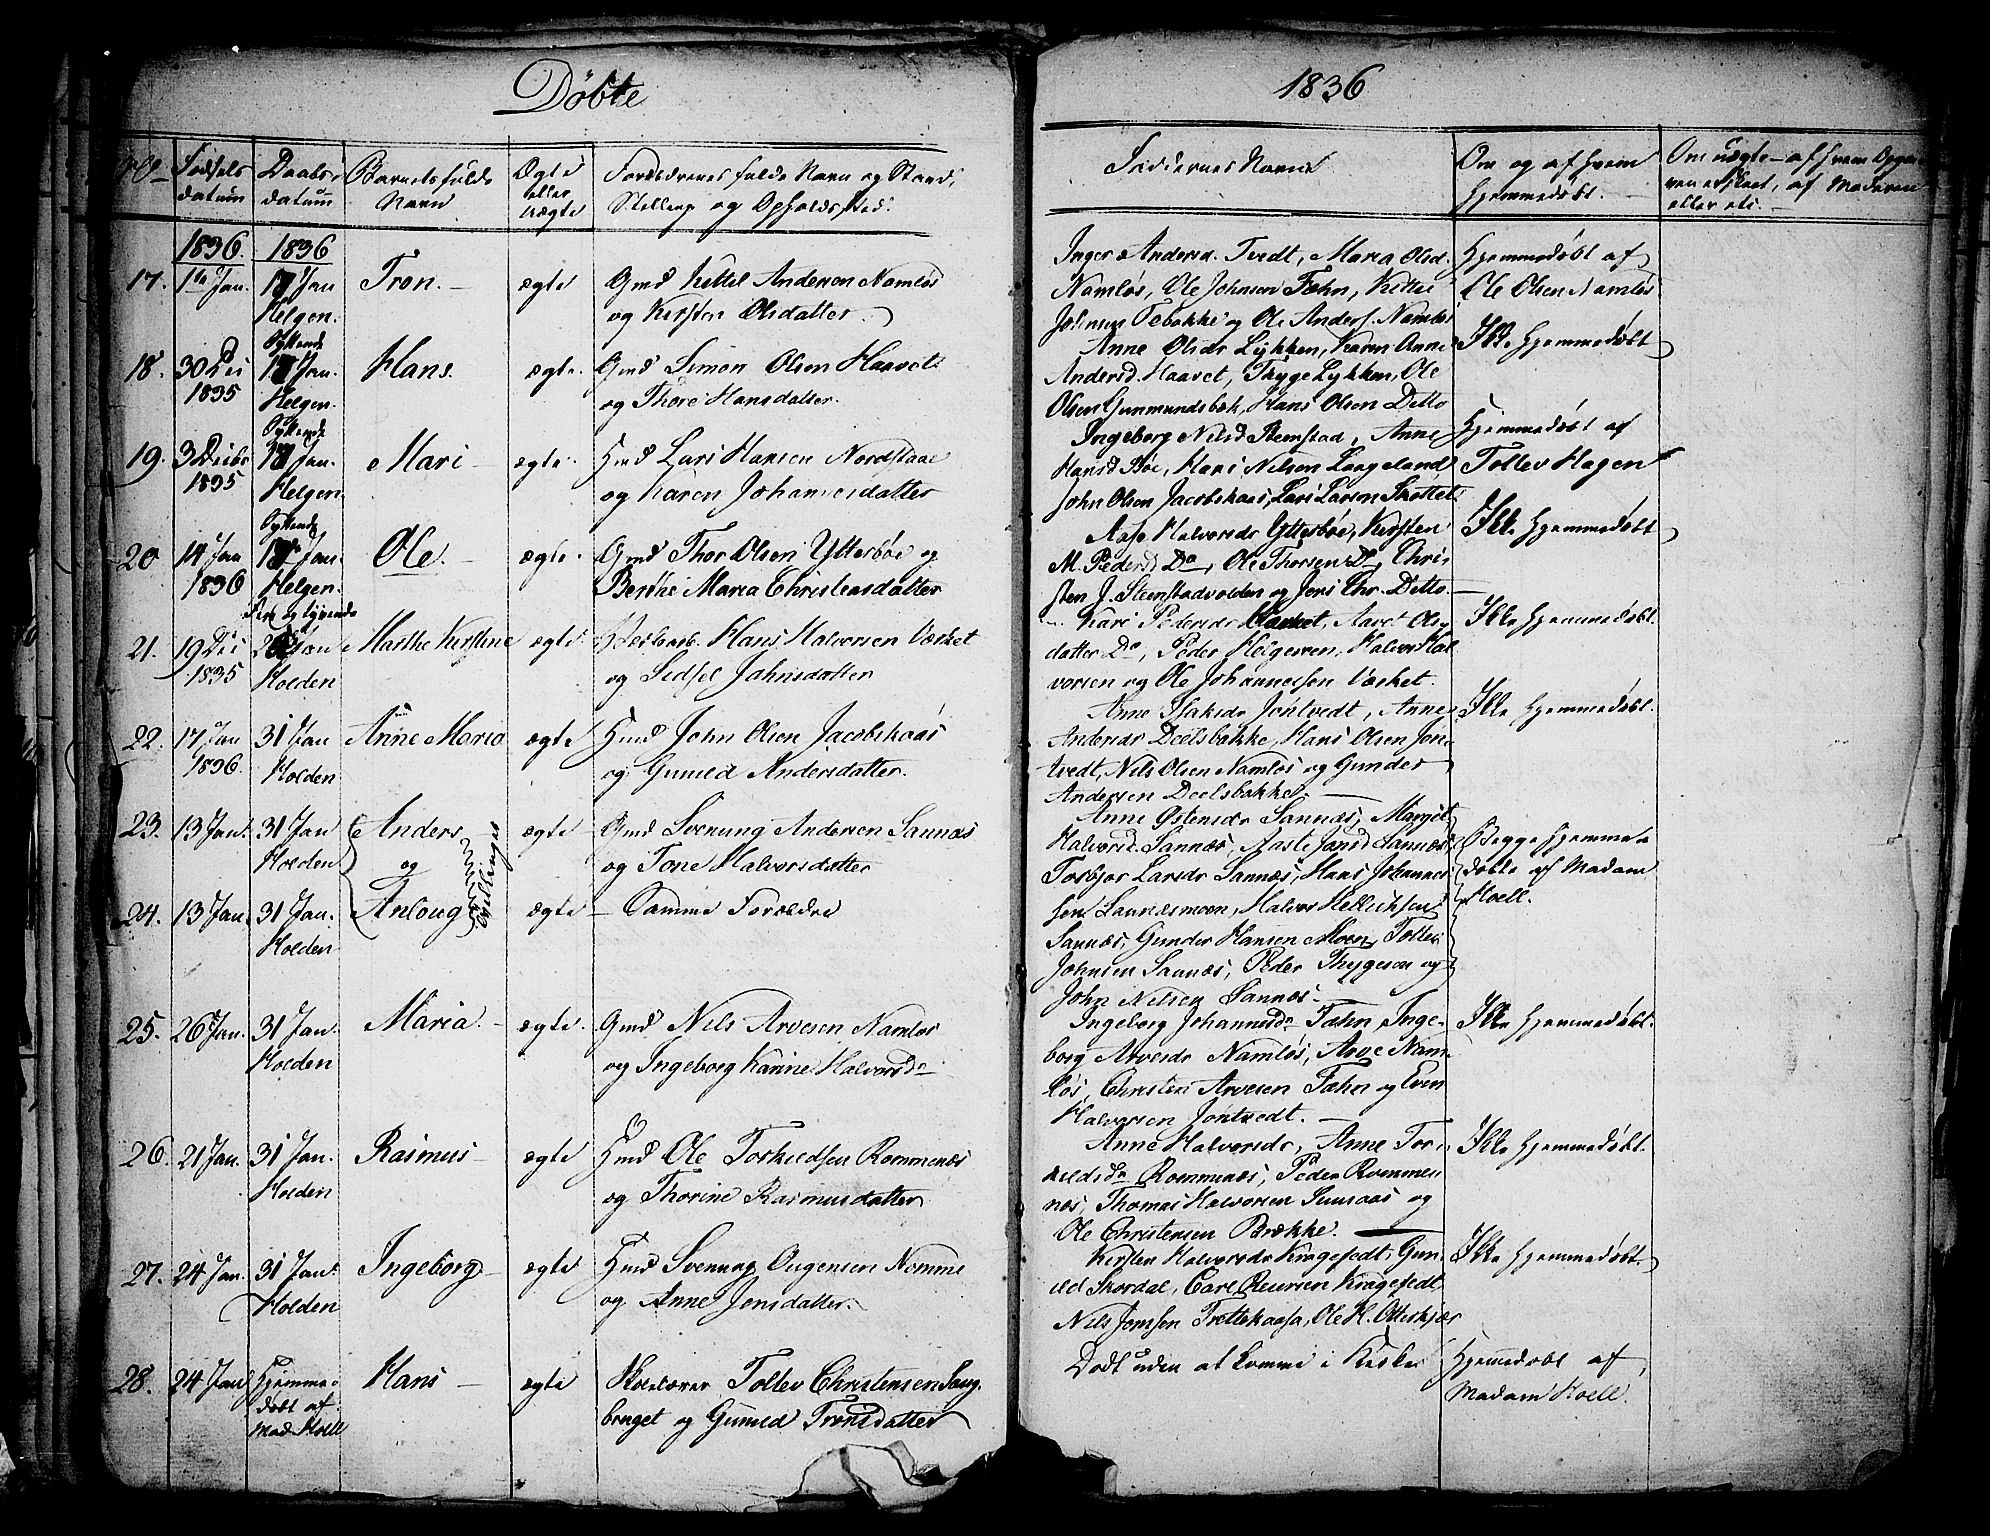 Döbte
1836
No
Födsels datum
Daabs datum
Barnets fulde Navn
Ægte eller uægte
Forældrenes fulde Navn og Stand, Stilling og Opholdssted.
Faddernes Navne
Om og af hvem hjemmedöbt.
Om uægte af hvem Opgaven er skeet, af Moderen eller etc.
1836. 1836
17. 1ste Jan. 17 Jan Helgen. Tron. ægte
Gmd Kittel Andersen Namlös
og Kirsten Olsdatter.
Inger Andersd. Tvedt, Maria Olsd.
Namlös, Ole Johnsen Fæhn, Kittil
Johnsen Tebakke og Ole Anders. Namlös
Hjemmedöbt af
Ole Olsen Namlös
18. 30 Dec 1835 17 Jan. Helgen. Hans. ægte.
Gmd Simon Olsen Haavet
og Thore Hansdatter.
Anne Olsdr Lykken, Karen Anne
Andersd. Haavet, Thyge Lykken, Ole
Olsen Gunmundsbek, Hans Olsen Ditto
Ikke hjemmedöbt
19. 3 Decbr 1835 17 Jan. Helgen Mari ægte.
Hmd Lars Hansen Nordstaae
og Karen Johannesdatter
Ingeborg Nilsd Stenstad, Anne
Hansd Böe, Hans Nilsen Laageland
John Olsen Jacobskaas, Lars Larsen Skottet
Hjemmedöbt af
Tollev Hagen
20 14 Jan 1836 17 Jan. Helgen. Ole. ægte.
Gmd Thor Olsen Ytterböe og
Berthe Maria Christensdatter
Aase Halvorsdr Ytterböe, Kirsten
M. Pedersd Do, Ole Thorsen Do, Chris
sten J. Steenstadvolden og Jens Chr. Ditto.
Ikke hjemmedöbt
21. 19 Dec 1835 Holden Marthe Kirstine ægte
Hans Halvorsen Værket
og Sidsel Jahnsdatter
Kari Pedersdr Værket, Aavet Ols
datter Do, Peder Helgesen, Halvor Hal
vorsen og Ole Johannesen Værket.
Ikke hjemmedöbt.
22. 17 Jan 1836. 31 Jan Holden Anne Maria ægte
Hmd John Olsen Jacobskaas
og Gunild Andersdatter.
Anne Isaksdr Jöntvedt, Anne
Andersdr Deelsbakke, Hans Olsen Jön
tvedt, Nils Olsen Namlös og Gunder
Andersen Deelsbakke.
Ikke hjemmedöbt.
23. 13 Jan. 31 Jan Holden Anders ægte
og
Tvillinger
Gmd Svenung Andersen Sannæs
og Tone Halvorsdatter
Anne Östensdr Sannæs, Margit
Halvorsd. Sannæs, Aaste Jansd Sannæs
Torbjör Larsdr Sannæs, Hans Johannes
sen Sannæsmoen, Halvor Kellichsen
Sannæs, Gunder Hansen Moen, Tollev
Johnsen Sannæs, Peder Thygeson og
John Nilsen Sannæs.
Begge hjemme
döbte af Madam
Hoell.
24. 13 Jan. 31 Jan. Holden Anloug ægte
Samme Forældre
25. 26 Jan. 31 Jan. Holden Maria. ægte.
Gmd Nils Arvesen Namlös
og Ingeborg Karine Halvorsdr
Ingeborg Johannesdr Fæhn, Inge
borg Arvesdr Namlös, Arve Nam
lös, Christen Arvesen Fæhn og Even
Halvorsen Jöntvedt.
Ikke hjemmedöbt.
26. 21 Jan. 31 Jan. Holden Rasmus ægte
Hmd Ole Torkildsen Rommenæs
og Thorine Rasmusdatter
Anne Halvorsdr, Anne Tor
kildsdr Rommenæs, Peder Rommen
næs, Thomas Halvorsen og
Ole Christensen Brække.
Ikke hjemmedöbt.
27. 24 Jan. 31 Jan. Holden Ingeborg ægte
Hmd Svenung Ougensen Nomme
og Anne Jensdatter.
Kirsten Halvorsdr Kragefedt, Gun
ild Skordal, Carl Reiersen Kragefedt,
Nils Jomsen Trættekaasa, Ole H. Otterkjær
Ikke hjemmedöbt.
28. 24 Jan Hjemme döbt af Mad. Hoell Hans ægte
Skolelærer Tollev Christensen Saug
bruget og Gunild Tronsdatter
Dödt uden at komme i Kirke
Hjemmedöbt af
Madam Hoell.